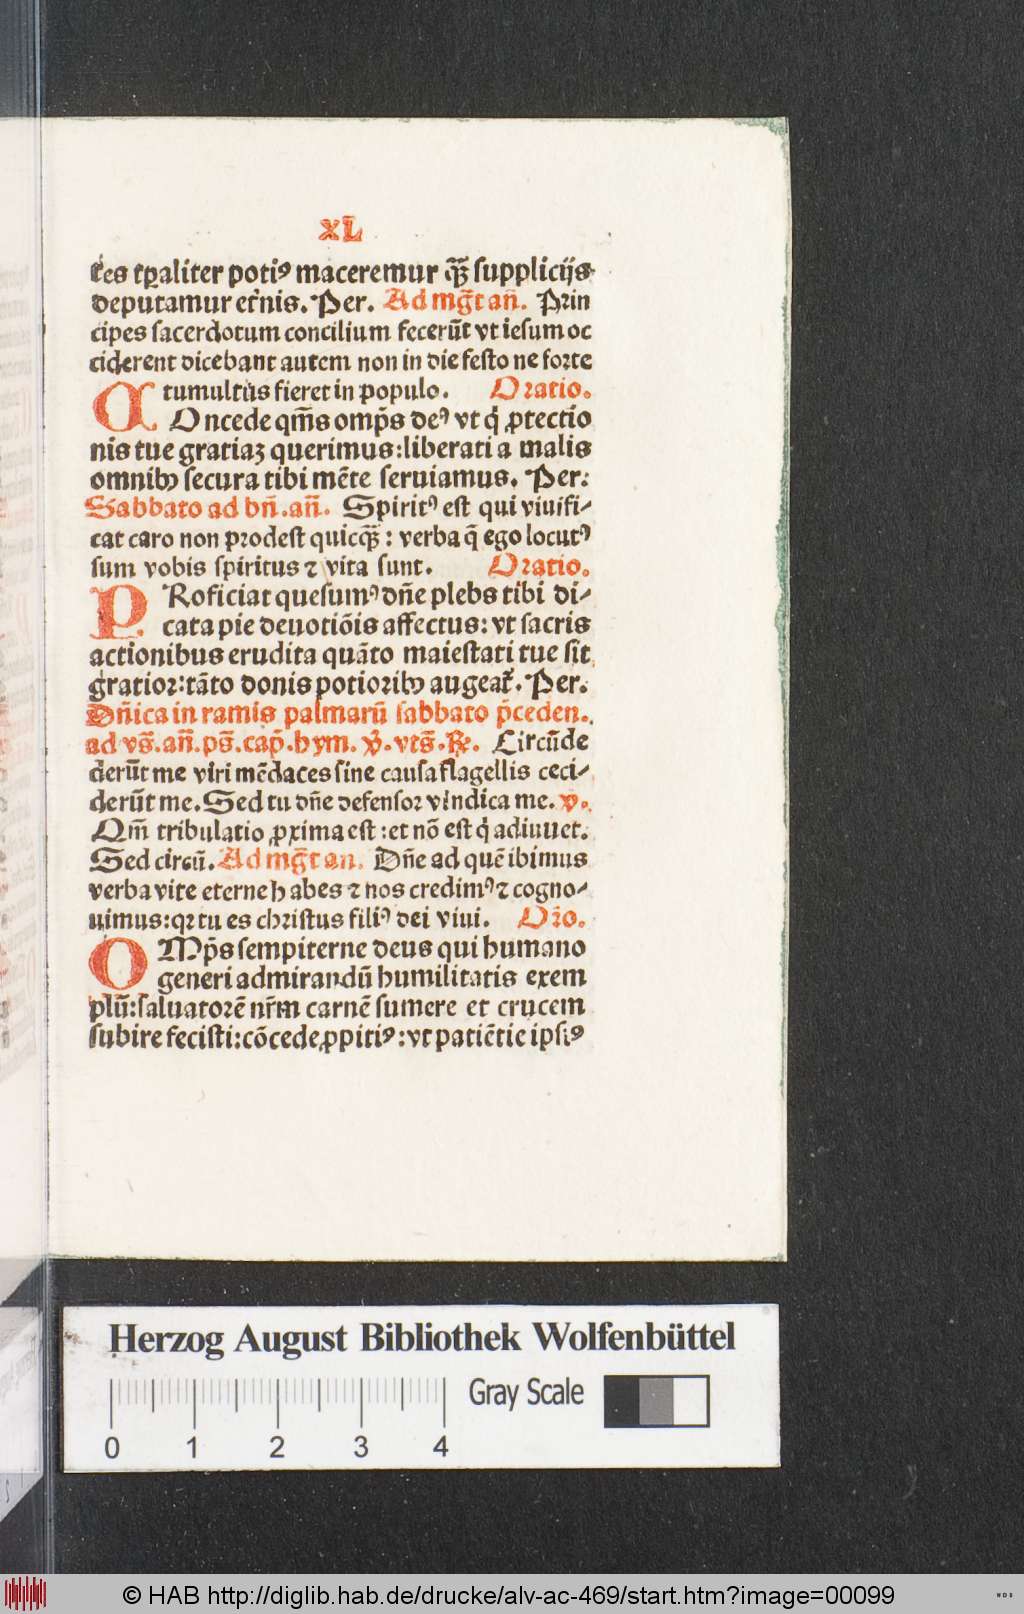 XL
tes tp̄aliter poti⁹ maceremur q̄ꝫ supplicijs
deputamur et̄nis. Per. Ad mg̅t an̄. Prin
cipes sacerdotum concilium fecerūt vt iesum oc
ciderent dicebant autem non in die festo ne forte
tumultus fieret in populo. Oratio.
COncede qm̄s omp̄s de⁹ vt q̇ ꝓtectio
nis tue gratiaꝫ querimus: liberati a malis
omnibꝰ secura tibi mēte seruiamus. Per:
Sabbato ad bn̄. an̄. Spirit⁹ est qui viuifi⸗
cat caro non prodest quicq̄ꝫ: verba q̄ ego locut⁹
sum vobis spiritus ⁊ vita sunt. Oratio.
PRoficiat quesum⁹ dn̄e plebs tibi di⸗
cata pie deuotiōis affectus: vt sacris
actionibus erudita quāto maiestati tue sit
gratior: tāto donis potioribꝰ augeat᷑. Per.
Dn̄ica in ramis palmarū sabbato p̄ceden.
ad vs̄. an̄. ps̄. cap̄. hym. ꝟ. vts̄. ℞. Circūde
derūt me viri mēdaces sine causa flagellis ceci⸗
derūt me. Sed tu dn̄e defensor vindica me. ꝟ.
Qm̄ tribulatio ꝓxima est: et nō est q̇ adiuuet.
Sed circū. Ad mg̅t an. Dn̄e ad quē ibimus
verba vite eterne habes ⁊ nos credim⁹ ⁊ cogno⸗
uimus: qꝛ tu es christus fili⁹ dei viui. Or̄o.
OMp̄s sempiterne deus qui humano
generi admirandū humilitatis exem
plū: saluatorē nr̄m carnē sumere et crucem
subire fecisti: cōcede ꝓpiti⁹: vt patiētie ipsi⁹
Herzog August Bibliothek Wolfenbüttel
Gray Scale
0 1 2 3 4
© HAB http://diglib.hab.de/drucke/alv-ac-469/start.htm?image=00099